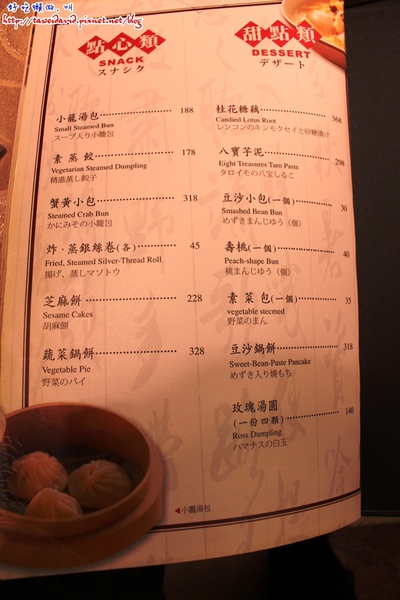 好させ懶の．叫
點心類
SNACK
スナシク
小籠湯包 188
Small Steamed Bun
スープ入り小籠包
素蒸餃 178
Vegetarian Steamed Dumpling
精進蒸し餃子
蟹黃小包 318
Steamed Crab Bun
かにみその小籠包
炸、蒸銀絲卷(各) 45
Fried, Steamed Silver-Thread Roll
揚げ、蒸しマソトウ
芝麻餅 228
Sesame Cakes
胡麻餅
蔬菜鍋餅 328
Vegetable Pie
野菜のパイ
甜點類
DESSERT
デザート
桂花糖藕 368
Candied Lotus Root
レンコンのキンモクセイと砂糖漬け
八寶芋泥 298
Eight Treasures Taro Paste
タロイモの八宝しるこ
豆沙小包(一個) 30
Smashed Bean Bun
めずきまんじゆう（個）
壽桃(一個) 40
Peach-shape Bun
桃まんじゆう（個）
素菜包(一個) 35
vegetable stecmed
野菜のまん
豆沙鍋餅 318
Sweet-Bean-Paste Pancake
めずき入り燒もち
玫瑰湯圓
(一份四顆) 140
Ross Dumpling
ハマナスの白玉
◀小籠湯包